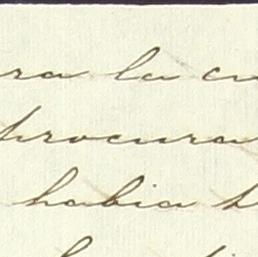 ra la cu
procura
habia t